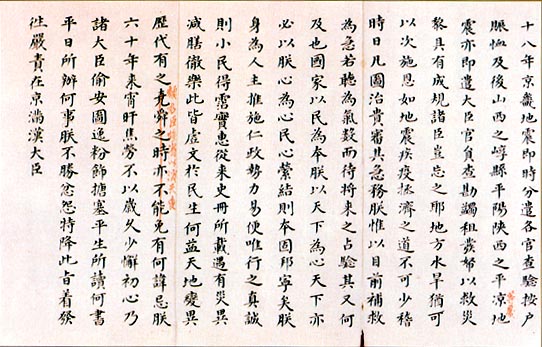 十八年京畿地震即時分遣各官查驗按户
賑恤及後山西之崞縣平陽陝西之平涼地
震亦即遣大臣官員查勘蠲租發帑以救災
黎具有成規諸臣豈忘之耶地方水旱猶可
以次施恩如地震疾疫拯濟之道不可少稽
時日凡圖治貴審其急務朕惟以目前補救
為急若聽為氣數而待將來之占驗其又何
及也國家以民為本朕以天下為心天下亦
必以朕心為心民心縈結則本固邦寧矣朕
身為人主推施仁政勢力易便唯行之真誠
則小民得霑實惠從來史冊所載遇有災異
減膳徹樂此皆虛文於民生何益天地變異
歷代有之堯舜之時亦不能免有何諱忌朕
六十年来宵旰焦勞不以歲久少懈初心乃
諸大臣偷安圖逸粉飾搪塞平生所讀何書
平日所辦何事朕不勝忿怨特降此旨着發
往嚴責在京滿漢大臣